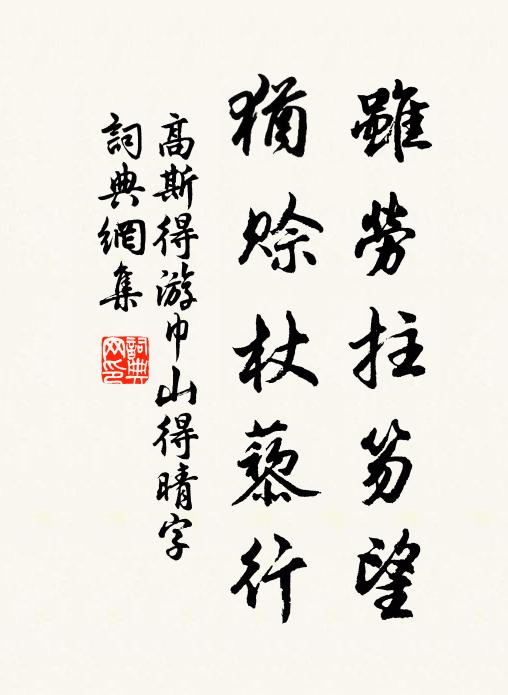 雖勞拄笏望
猶賒杖藜行
高斯得游巾山得晴字
詞典網集
詞典網印